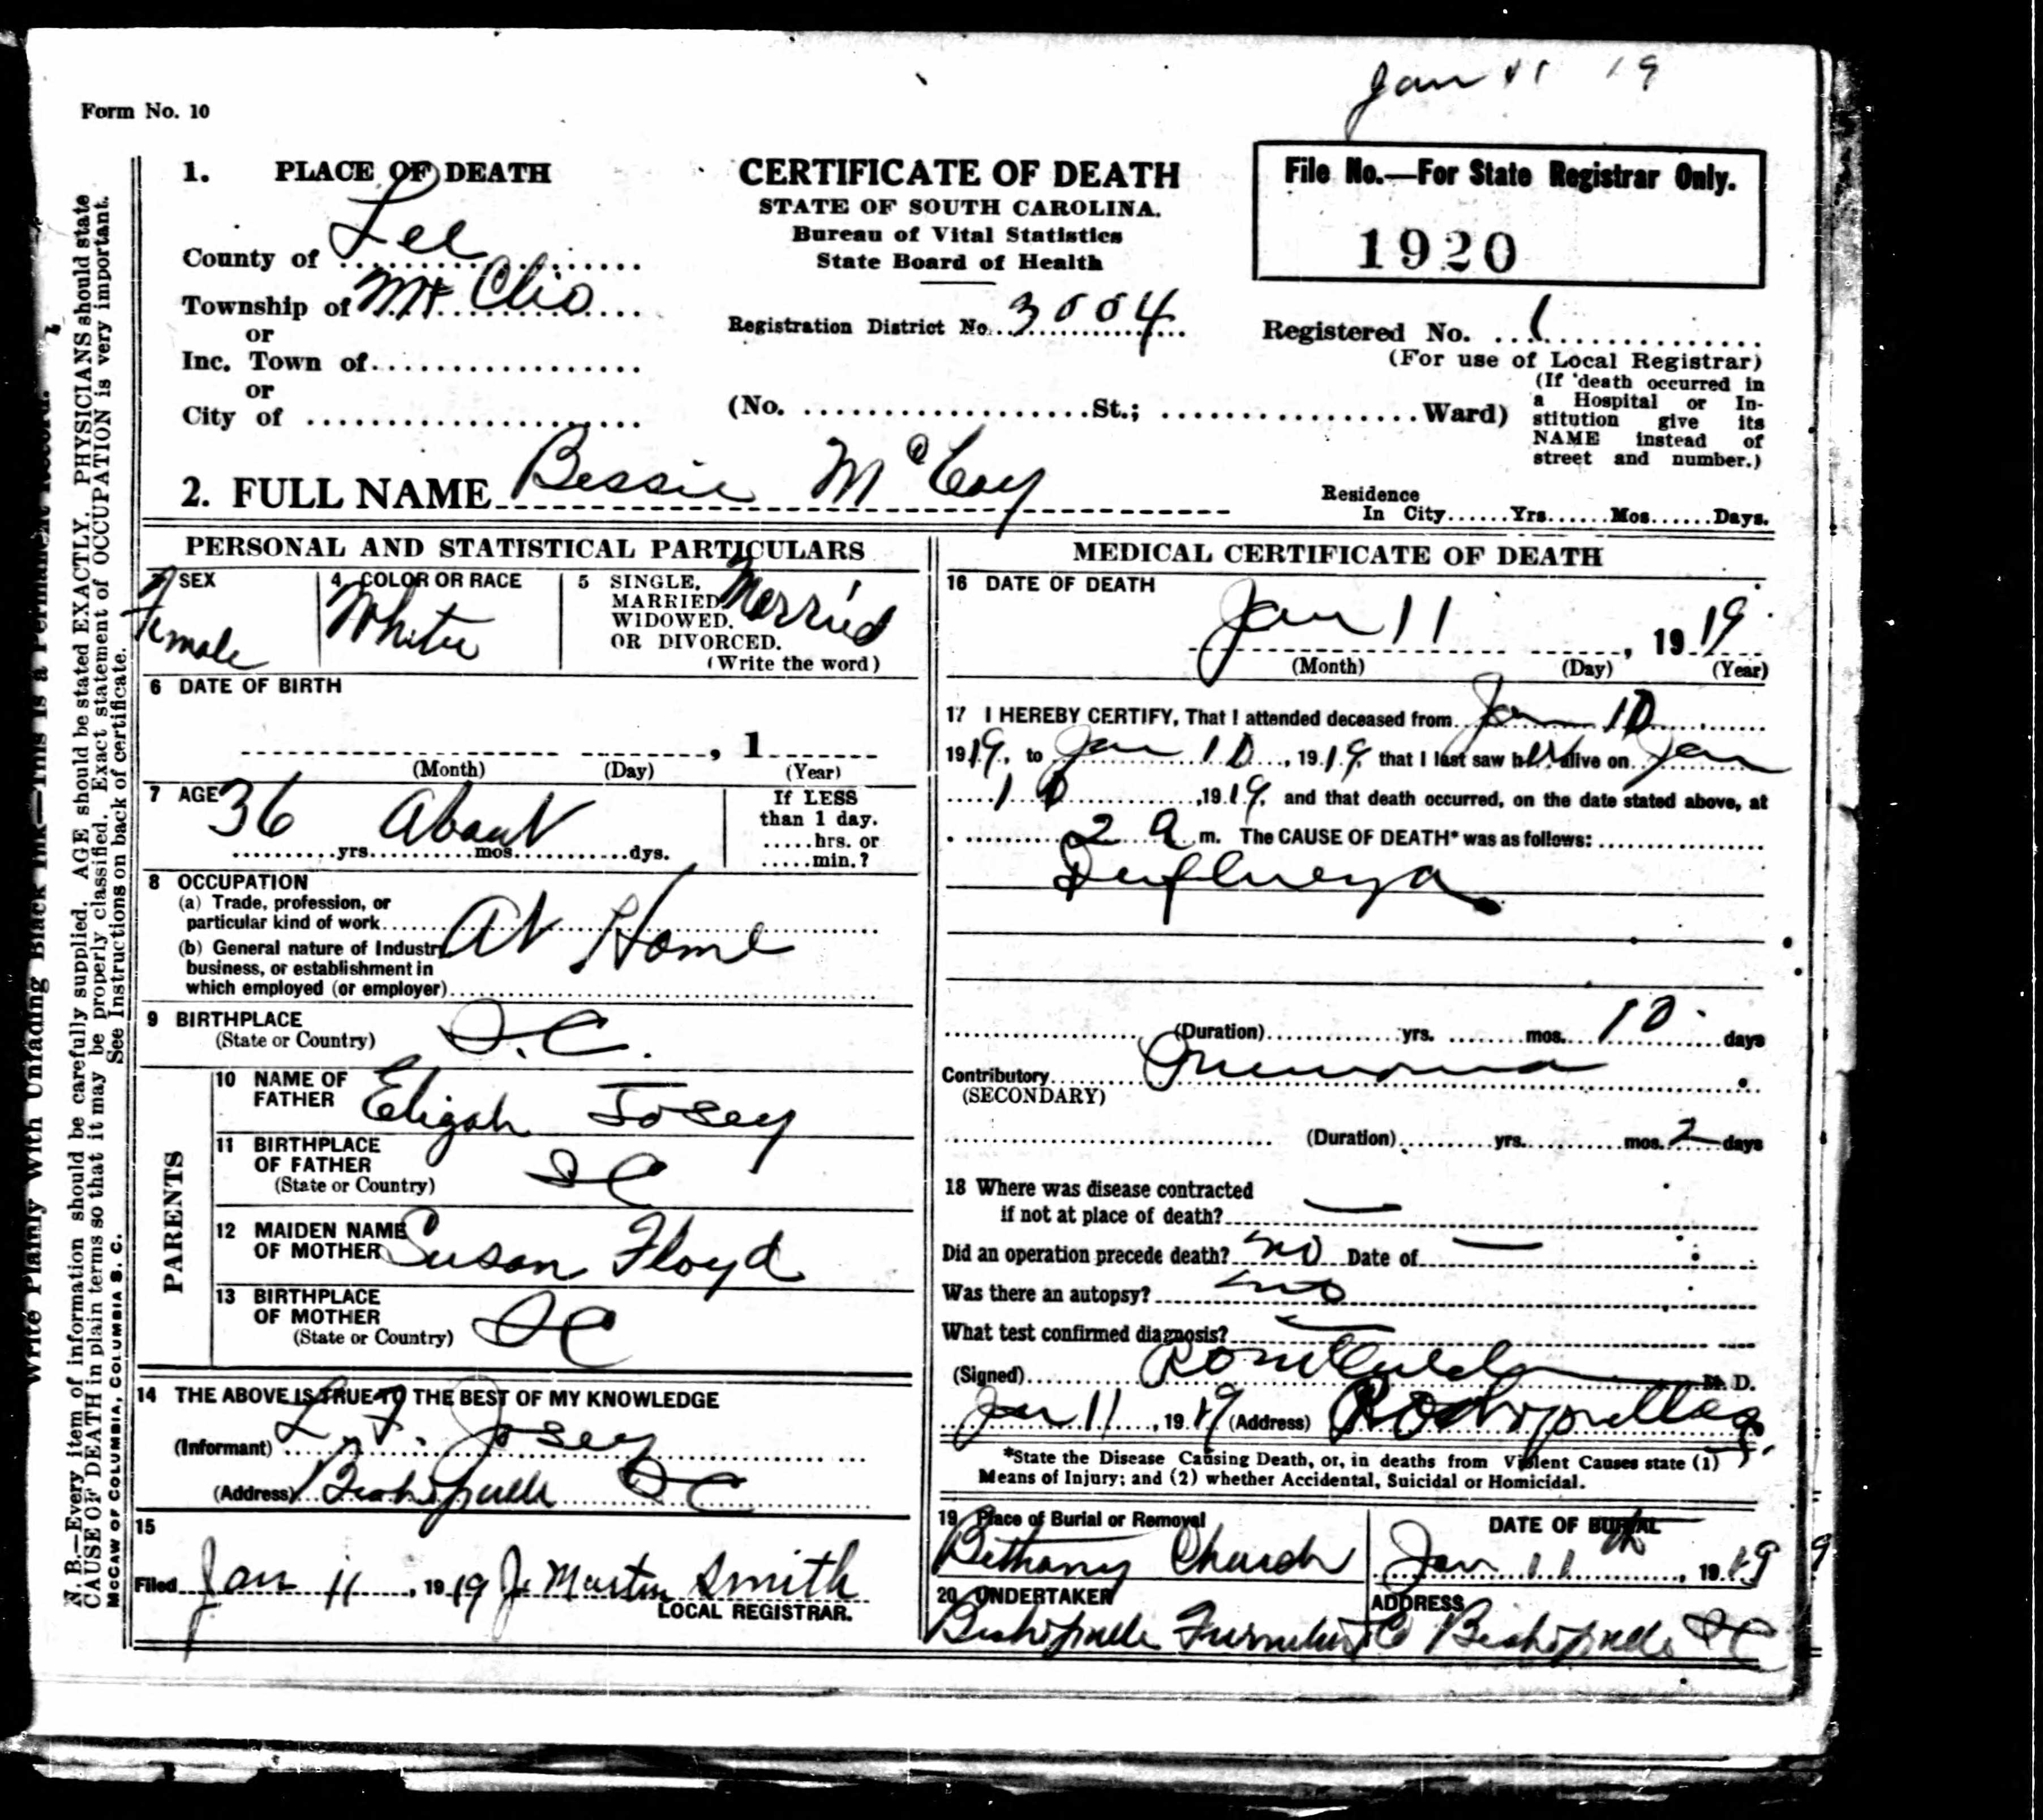 Jan 11 19
Form No. 10
1. PLACE OF DEATH
County of Lee
Township of Mt Clio
or
Inc. Town of
or
City of
CERTIFICATE OF DEATH
STATE OF SOUTH CAROLINA.
Bureau of Vital Statistics
State Board of Health
Registration District No. 3004
(No. St.; Ward)
File No.—For State Registrar Only.
1920
Registered No. 1
(For use of Local Registrar)
(If death occurred in
a Hospital or In-
stitution give its
NAME instead of
street and number.)
2. FULL NAME Bessie McCoy
Residence
In City......Yrs......Mos......Days.
PERSONAL AND STATISTICAL PARTICULARS
3 SEX
Female
4 COLOR OR RACE
White
5 SINGLE,
MARRIED,
WIDOWED.
OR DIVORCED.
(Write the word)
Married
6 DATE OF BIRTH
, 1
(Month) (Day) (Year)
7 AGE
36 About
yrs. mos. dys.
If LESS
than 1 day.
.....hrs. or
.....min.?
8 OCCUPATION
(a) Trade, profession, or
particular kind of work
(b) General nature of Industry
business, or establishment in
which employed (or employer)
At Home
9 BIRTHPLACE
(State or Country)
S.C.
PARENTS
10 NAME OF
FATHER
Eligah Josey
11 BIRTHPLACE
OF FATHER
(State or Country)
SC
12 MAIDEN NAME
OF MOTHER
Susan Floyd
13 BIRTHPLACE
OF MOTHER
(State or Country)
SC
14 THE ABOVE IS TRUE TO THE BEST OF MY KNOWLEDGE
(Informant) L. F. Josey
(Address) Bishopville SC
15
Filed Jan 11, 1919 J. Martin Smith
LOCAL REGISTRAR.
MEDICAL CERTIFICATE OF DEATH
16 DATE OF DEATH
Jan 11, 1919
(Month) (Day) (Year)
17 I HEREBY CERTIFY, That I attended deceased from Jan 10
1919, to Jan 10, 1919, that I last saw her alive on Jan
10, 1919, and that death occurred, on the date stated above, at
2 a m. The CAUSE OF DEATH* was as follows:
Influenza
(Duration) yrs. mos. 10 days
Contributory Pneumonia
(SECONDARY)
(Duration) yrs. mos. 2 days
18 Where was disease contracted
if not at place of death? —
Did an operation precede death? no Date of —
Was there an autopsy? no
What test confirmed diagnosis? —
(Signed) M. D.
Jan 11, 1919 (Address)
*State the Disease Causing Death, or, in deaths from Violent Causes state (1)
Means of Injury; and (2) whether Accidental, Suicidal or Homicidal.
19 Place of Burial or Removal
Bethany Church
DATE OF BURIAL
Jan 11th, 1919
20 UNDERTAKER
Bishopville Furniture Co
ADDRESS
Bishopville SC
Write Plainly With Unfading Black Ink—This is a Permanent Record.
N. B.—Every item of information should be carefully supplied. AGE should be stated EXACTLY. PHYSICIANS should state
CAUSE OF DEATH in plain terms so that it may be properly classified. Exact statement of OCCUPATION is very important.
See Instructions on back of certificate.
McCAW OF COLUMBIA, COLUMBIA S. C.